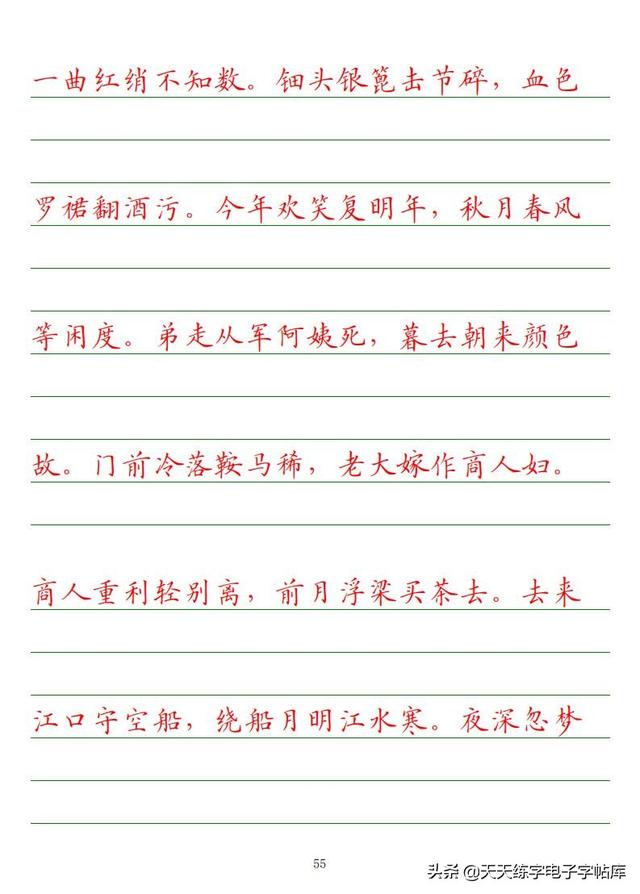 一曲红绡不知数。钿头银篦击节碎，血色
罗裙翻酒污。今年欢笑复明年，秋月春风
等闲度。弟走从军阿姨死，暮去朝来颜色
故。门前冷落鞍马稀，老大嫁作商人妇。
商人重利轻别离，前月浮梁买茶去。去来
江口守空船，绕船月明江水寒。夜深忽梦
55
头条@天天练字电子字帖库